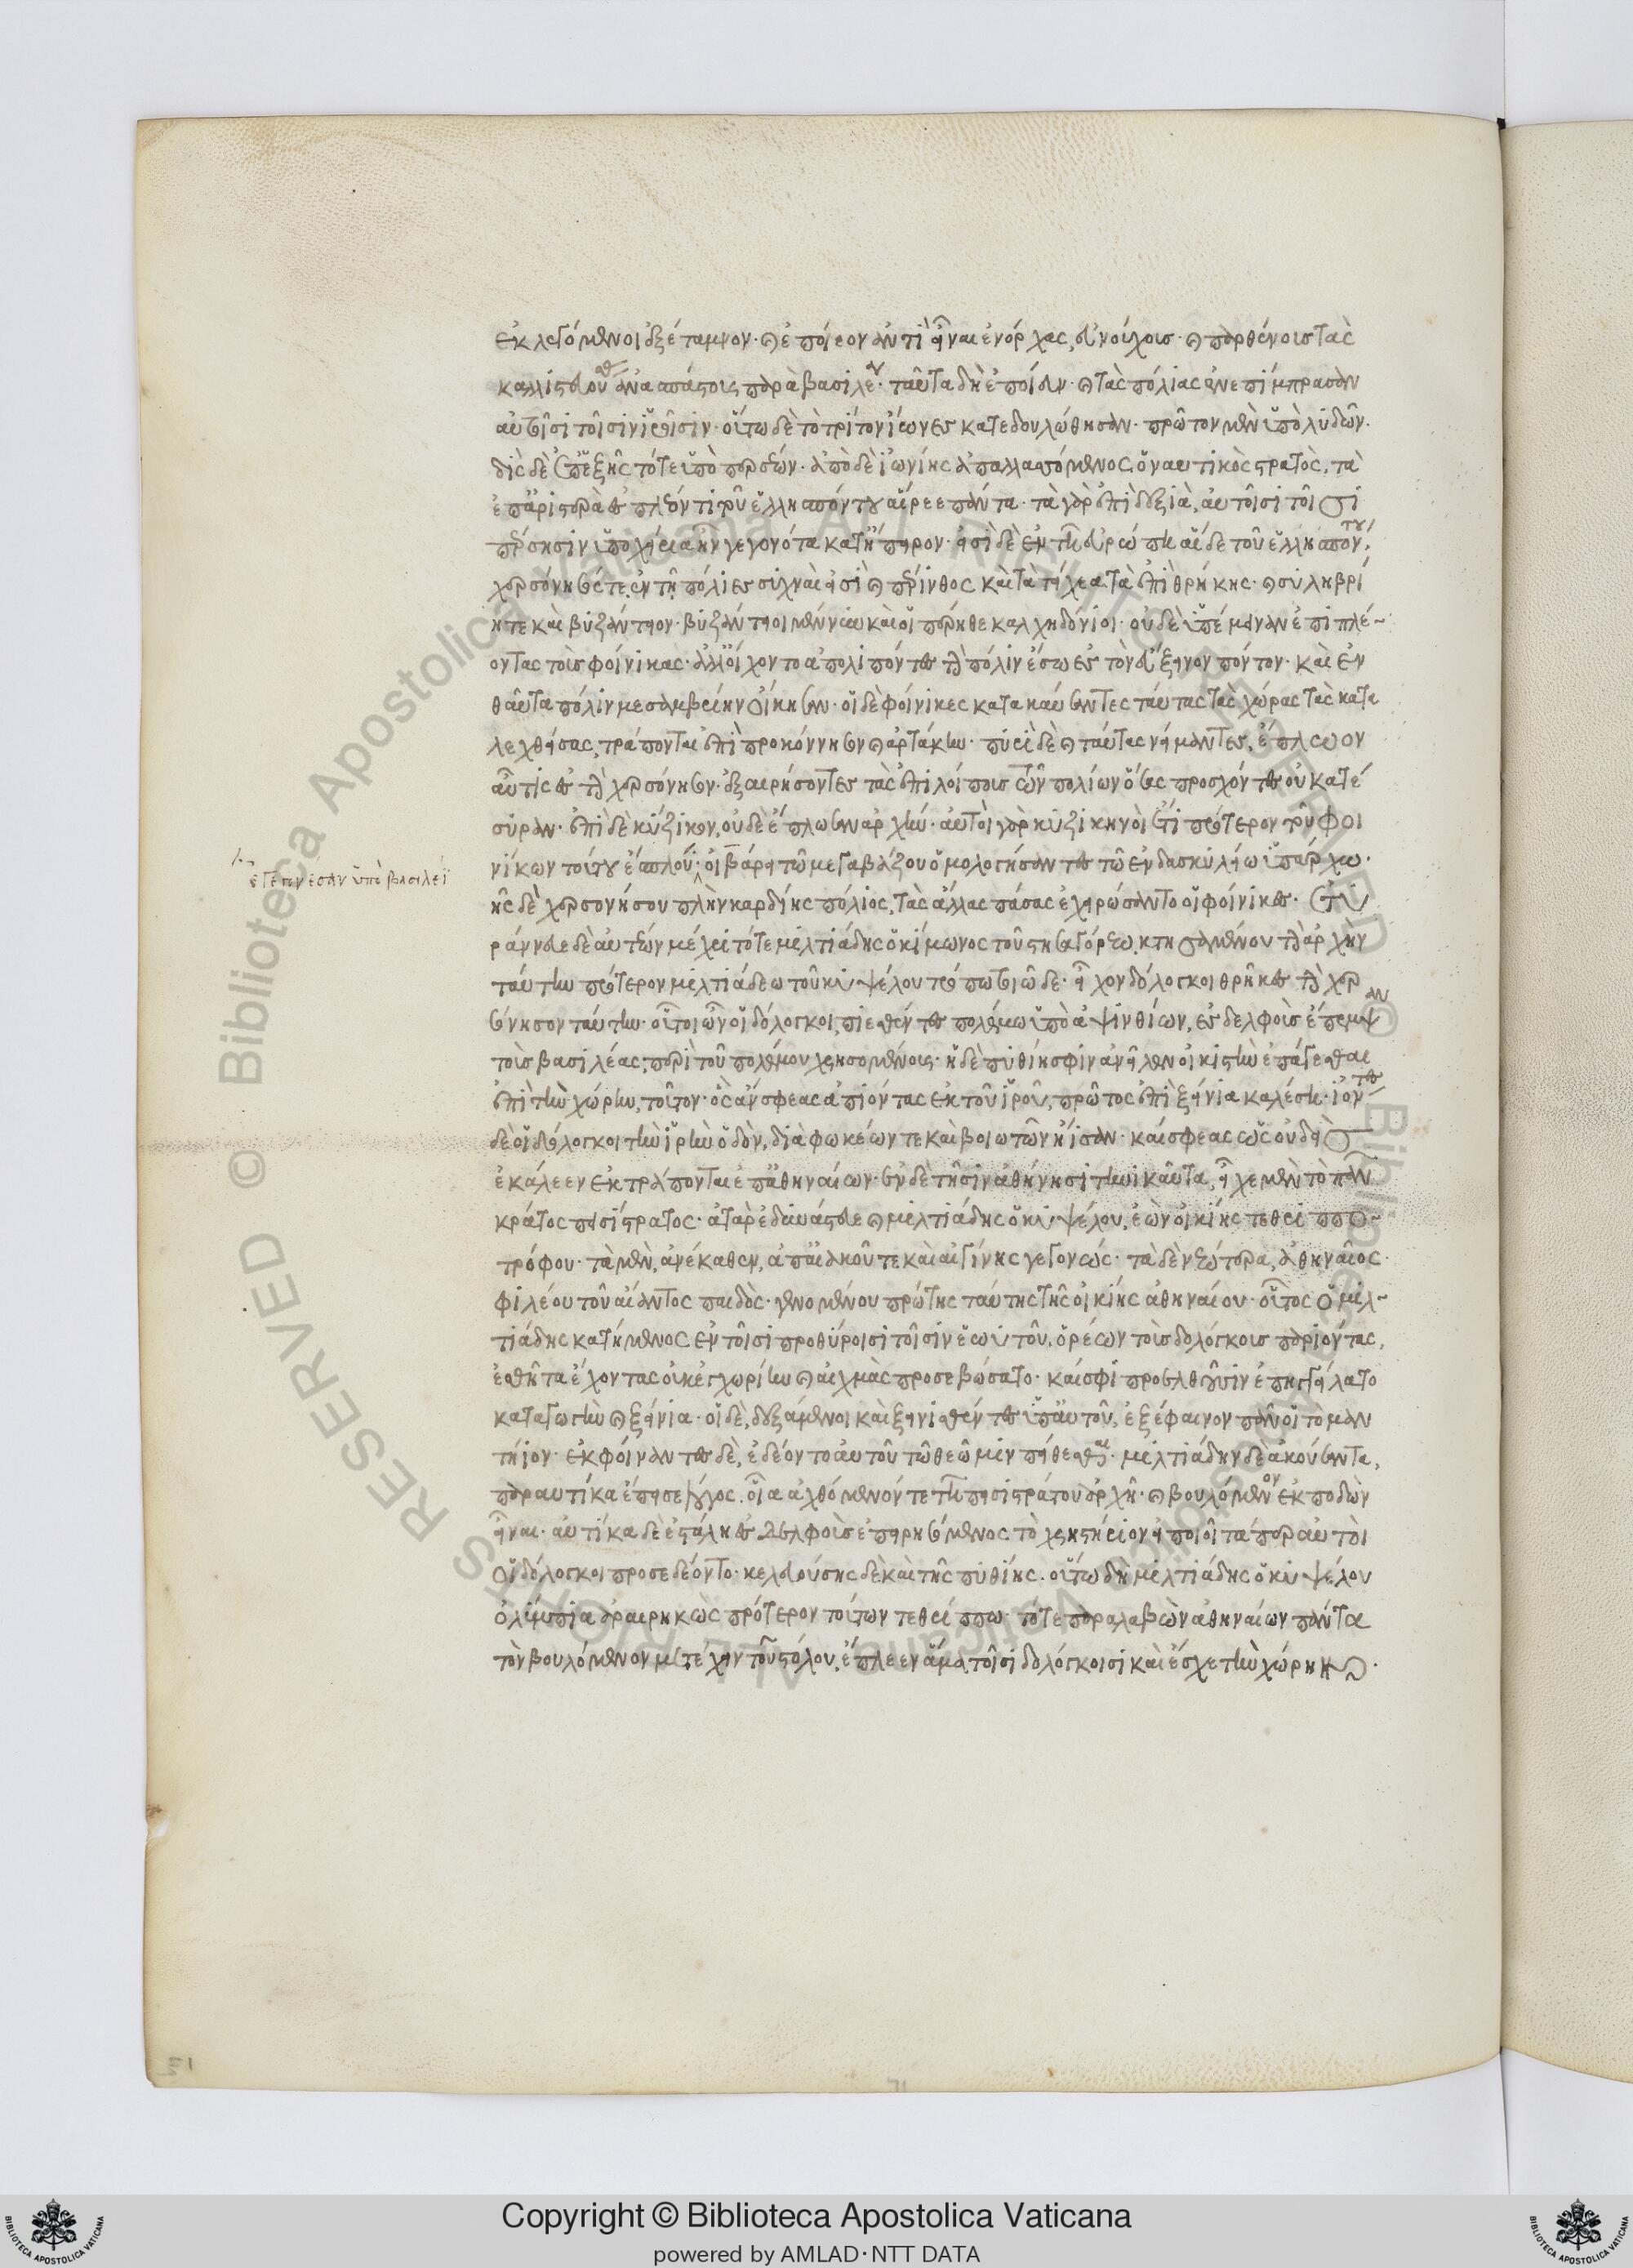 ἐκλεγόμενοι ἐξέταμνον· καὶ ἐποίεον ἀντὶ εἶναι ἐνόρχας, εὐνούχους· καὶ παρθένους τὰς
καλλιστευούσας ἀνασπάστους παρὰ βασιλέα· ταῦτα δὴ ἐποίευν· καὶ τὰς πόλιας ἐνεπίμπρασαν
αὐτοῖσι τοῖσιν ἱροῖσιν· οὕτω δὲ τὸ τρίτον ἴωνες κατεδουλώθησαν· πρῶτον μὲν ὑπὸ λυδῶν·
δὶς δὲ ἐπεξῆς τότε ὑπὸ περσέων· ἀπὸ δὲ ἰωνίης ἀπαλλασσόμενος ὁ ναυτικὸς στρατὸς, τὰ
ἐπ' ἀριστερὰ ἐσπλέοντι τοῦ ἑλλησπόντου αἵρεε πάντα· τὰ γὰρ ἐπὶ δεξιὰ, αὐτοῖσι τοῖσι
πέρσῃσιν ὑποχείρια ἦν γεγονότα κατ' ἤπειρον· εἰσὶ δὲ ἐν τῇ εὐρώπῃ αἵδε τοῦ ἑλλησπόντου·
χερσόνησός τε ἐν τῇ πόλιες συχναὶ εἰσὶ καὶ πέρινθος καὶ τὰ τείχεα τὰ ἐπὶ θρηίκης· καὶ σηλυβρί
η τε καὶ βυζάντιον· βυζάντιοι μέν νυν καὶ οἱ πέρηθε καλχηδόνιοι· οὐδὲ ὑπέμειναν ἐπιπλέ
οντας τοὺς φοίνικας· ἀλλ' οἴχοντο ἀπολιπόντες τὴν πόλιν ἔσω ἐς τὸν εὔξεινον πόντον· καὶ ἐν
θαῦτα πόλιν μεσαμβρίην οἴκησαν· οἱ δὲ φοίνικες κατακαύσαντες ταύτας τὰς χώρας τὰς κατα
λεχθείσας, τράπονται ἐπὶ προκόννησον καὶ ἀρτάκην· πυρὶ δὲ καὶ ταύτας νείμαντες, ἔπλωον
αὖτις ἐς τὴν χερσόνησον ἐξαιρήσοντες τὰς ἐπιλοίπους τῶν πολίων ὅσας προσχόντες οὐ κατέ
συραν· ἐπὶ δὲ κύζικον, οὐδὲ ἔπλωσαν ἀρχήν· αὐτοὶ γὰρ κυζικηνοὶ ἔτι πρότερον τοῦ φοι
νίκων τούτου ἔσπλου· οἰβάρει τῷ μεγαβάζου ὁμολογήσαντες τῷ ἐν δασκυλείῳ ὑπάρχῳ·
ἔτι ἐγεγόνεσαν ὑπὸ βασιλέϊ
τῆς δὲ χερσονήσου πλὴν καρδίης πόλιος, τὰς ἄλλας πάσας ἐχειρώσαντο οἱ φοίνικες· ἐτυ
ράννευε δὲ αὐτέων μέχρι τότε μιλτιάδης ὁ κίμωνος τοῦ στησαγόρεω, κτησαμένου τὴν ἀρχὴν
ταύτην πρότερον μιλτιάδεω τοῦ κυψέλου τρόπῳ τοιῷδε· εἶχον δόλογκοι θρήικες τὴν χερ
σόνησον ταύτην· οὗτοι ὦν οἱ δόλογκοι, πιεσθέντες πολέμῳ ὑπὸ ἀψινθίων, ἐς δελφοὺς ἔπεμψαν
τοὺς βασιλέας, περὶ τοῦ πολέμου χρησομένους· ἡ δὲ πυθίη σφιν ἀνεῖλεν οἰκιστὴν ἐπάγεσθαι
ἐπὶ τὴν χώρην, τοῦτον· ὃς ἄν σφεας ἀπιόντας ἐκ τοῦ ἱροῦ, πρῶτος ἐπὶ ξείνια καλέσῃ· ἰόντες
δὲ οἱ δόλογκοι τὴν ἱρὴν ὁδὸν, διὰ φωκέων τε καὶ βοιωτῶν ἤισαν· καί σφεας ὡς οὐδεὶς
ἐκάλεεν ἐκτράπονται ἐπ' ἀθηναίων· ἐν δὲ τῇσιν ἀθήνῃσι τηνικαῦτα, εἶχε μὲν τὸ πᾶν
κράτος πεισίστρατος· ἀτὰρ ἐδυνάστευε καὶ μιλτιάδης ὁ κυψέλου, ἐὼν οἰκίης τεθριππο
τρόφου· τὰ μὲν, ἀνέκαθεν, ἀπ' αἰακοῦ τε καὶ αἰγίνης γεγονώς· τὰ δὲ νεώτερα, ἀθηναῖος·
φιλέου τοῦ αἴαντος παιδὸς· γενομένου πρώτης ταύτης τῆς οἰκίης ἀθηναίου· οὗτος ὁ μιλ
τιάδης κατήμενος ἐν τοῖσι προθύροισι τοῖσιν ἑωυτοῦ, ὁρέων τοὺς δολόγκους παριόντας,
ἐσθῆτα ἔχοντας οὐκ ἐγχωρίην καὶ αἰχμὰς προσεβώσατο· καί σφι προσελθοῦσιν ἐπηγγείλατο
καταγωγὴν καὶ ξείνια· οἱ δὲ, δεξάμενοι καὶ ξεινισθέντες ὑπ' αὐτοῦ, ἐξέφαινον πᾶν οἱ τὸ μαν
τήιον· ἐκφήναντες δὲ, ἐδέοντο αὐτοῦ τῷ θεῷ μιν πείθεσθαι· μιλτιάδην δὲ ἀκούσαντα,
παραυτίκα ἔπεισε λόγος. οἷα ἀχθόμενόν τε τῇ πεισιστράτου ἀρχῇ· καὶ βουλόμενον ἐκποδὼν
εἶναι· αὐτίκα δὲ ἐστάλη ἐς δελφοὺς ἐπειρησόμενος τὸ χρηστήριον εἰ ποιοῖ τά περ αὐτοῦ
οἱ δόλογκοι προσεδέοντο· κελευούσης δὲ καὶ τῆς πυθίης· οὕτω δὴ μιλτιάδης ὁ κυψέλου
ὀλύμπια ἀραιρηκὼς πρότερον τούτων τεθρίππῳ· τότε παραλαβὼν ἀθηναίων πάντα
τὸν βουλόμενον μετέχειν τοῦ στόλου, ἔπλεεν ἅμα τοῖσι δολόγκοισι καὶ ἔσχε τὴν χώρην καὶ·